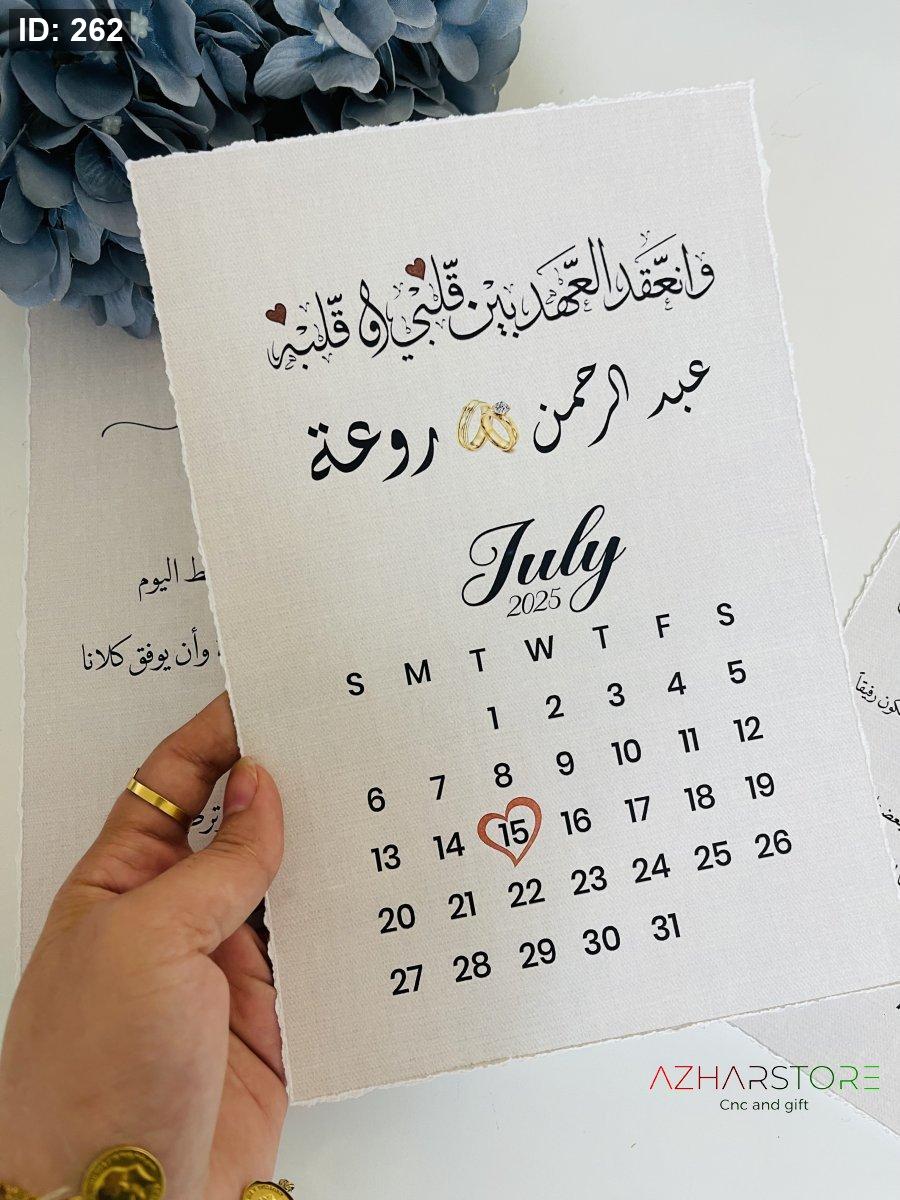 ID: 262
وانعَقد العَّهد بين قلّبي و قلّبه
عبد الرحمن روعة
July
2025
S M T W T F S
1 2 3 4 5
6 7 8 9 10 11 12
13 14 15 16 17 18 19
20 21 22 23 24 25 26
27 28 29 30 31
اليوم
وأن يوفق كلانا
AZHARSTORE
Cnc and gift